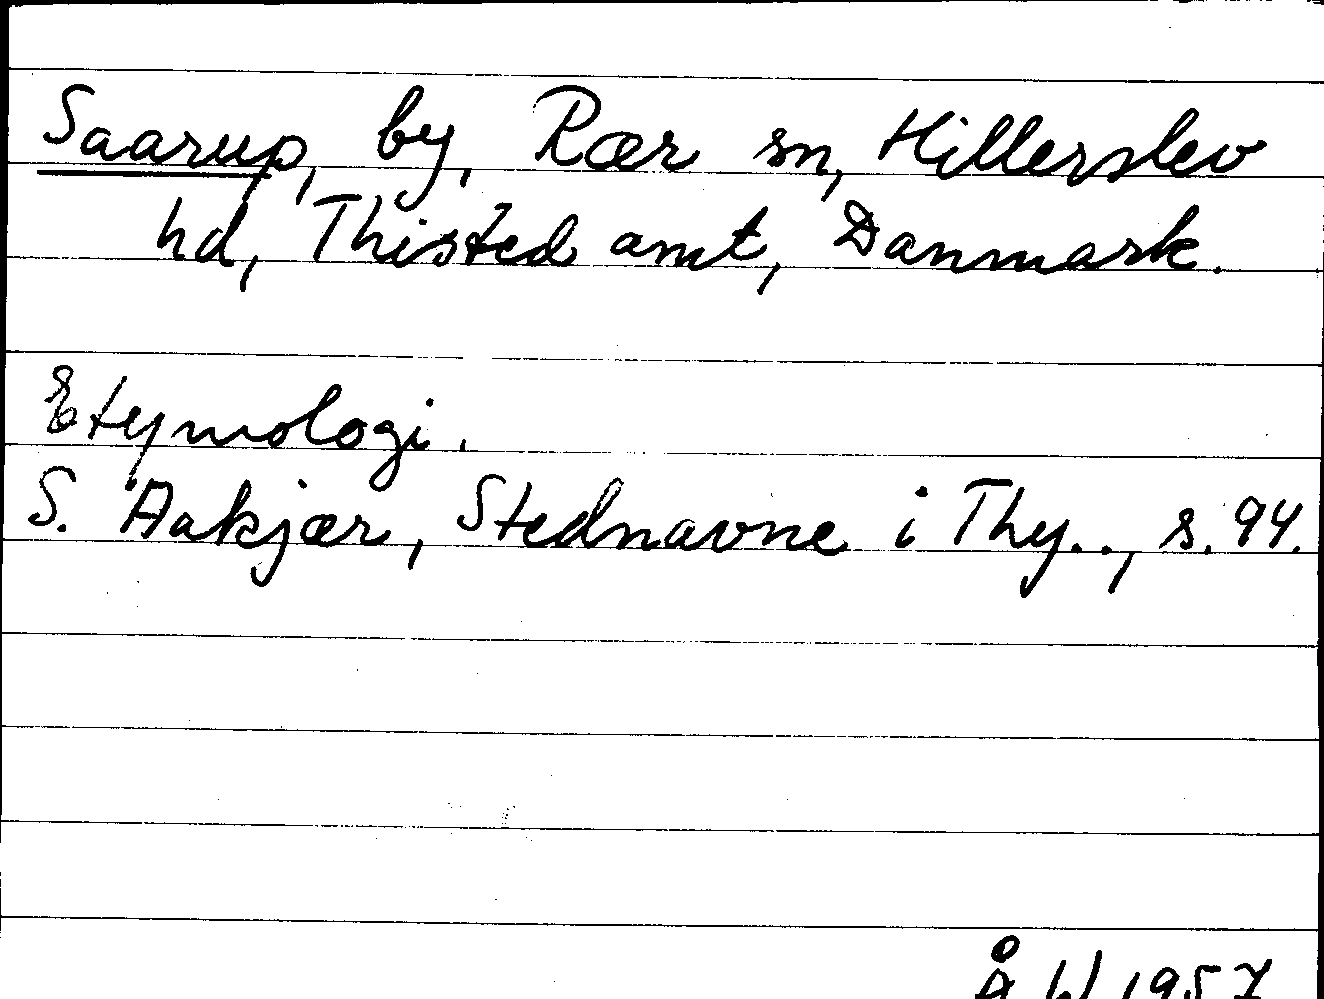 Saarup, by, Rær sn, Hillerslev
hd, Thisted amt, Danmark.
Etymologi.
S. Aakjær, Stednavne i Thy.., s. 94.
Å W 1957